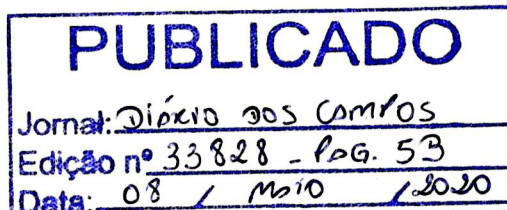 PUBLICADO
Jornal: Diário dos Campos
Edição nº 33828 - Pág. 5B
Data: 08 / Maio / 2020